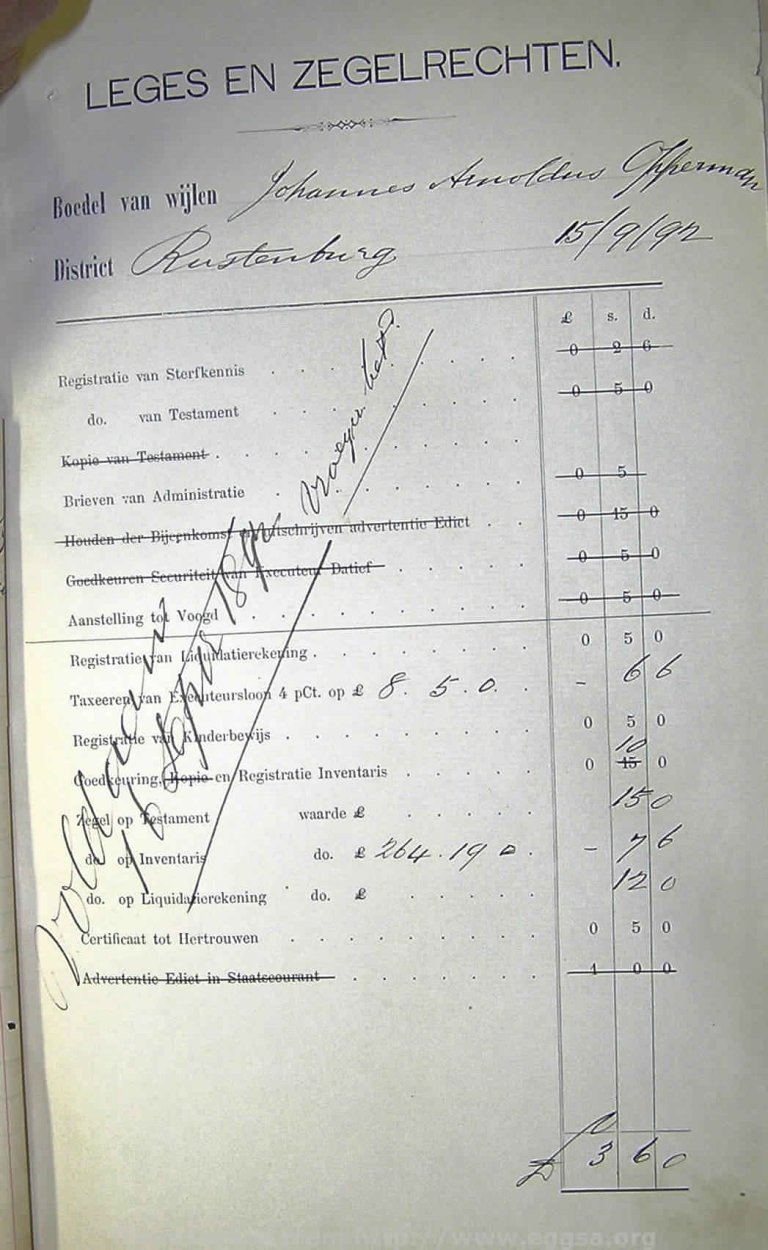 LEGES EN ZEGELRECHTEN.
Boedel van wijlen Johannes Arnoldus Opperman
District Rustenburg 15/9/92
£ s. d.
Registratie van Sterfkennis 0 2 6
do. van Testament 0 5 0
Kopie van Testament
Brieven van Administratie 0 5
Houden der Bijeenkomst en uitschrijven advertentie Edict 0 15 0
Goedkeuren Securiteit van Executeur Datief 0 5 0
Aanstelling tot Voogd 0 5 0
Registratie van Liquidatierekening 0 5 0
Taxeeren van Executeursloon 4 pCt. op £ 8. 5. 0. - 6 6
Registratie van Kinderbewijs 0 5 0
Goedkeuring, Kopie en Registratie Inventaris 0 15 10 0
Zegel op Testament waarde £ 15 0
do. op Inventaris do. £ 264. 19 0 - 7 6
do. op Liquidatierekening do. £ 12 0
Certificaat tot Hertrouwen 0 5 0
Advertentie Edict in Staatscourant 1 0 0
£ 3 6 0
Voldaan
16 Sept 1892
www.eggsa.org